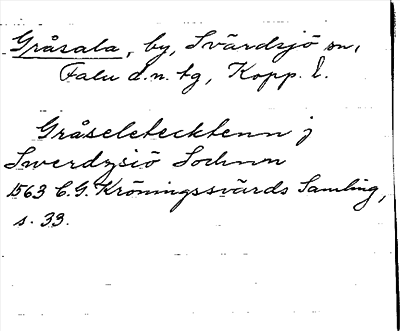 Gråsala, by, Svärdsjö sn,
Falu d.n. tg, Kopp. l.
Gråseletecktenn j
Swerdzsiö Sochnn
1563 C.G. Kröningssvärds Samling,
s. 33.